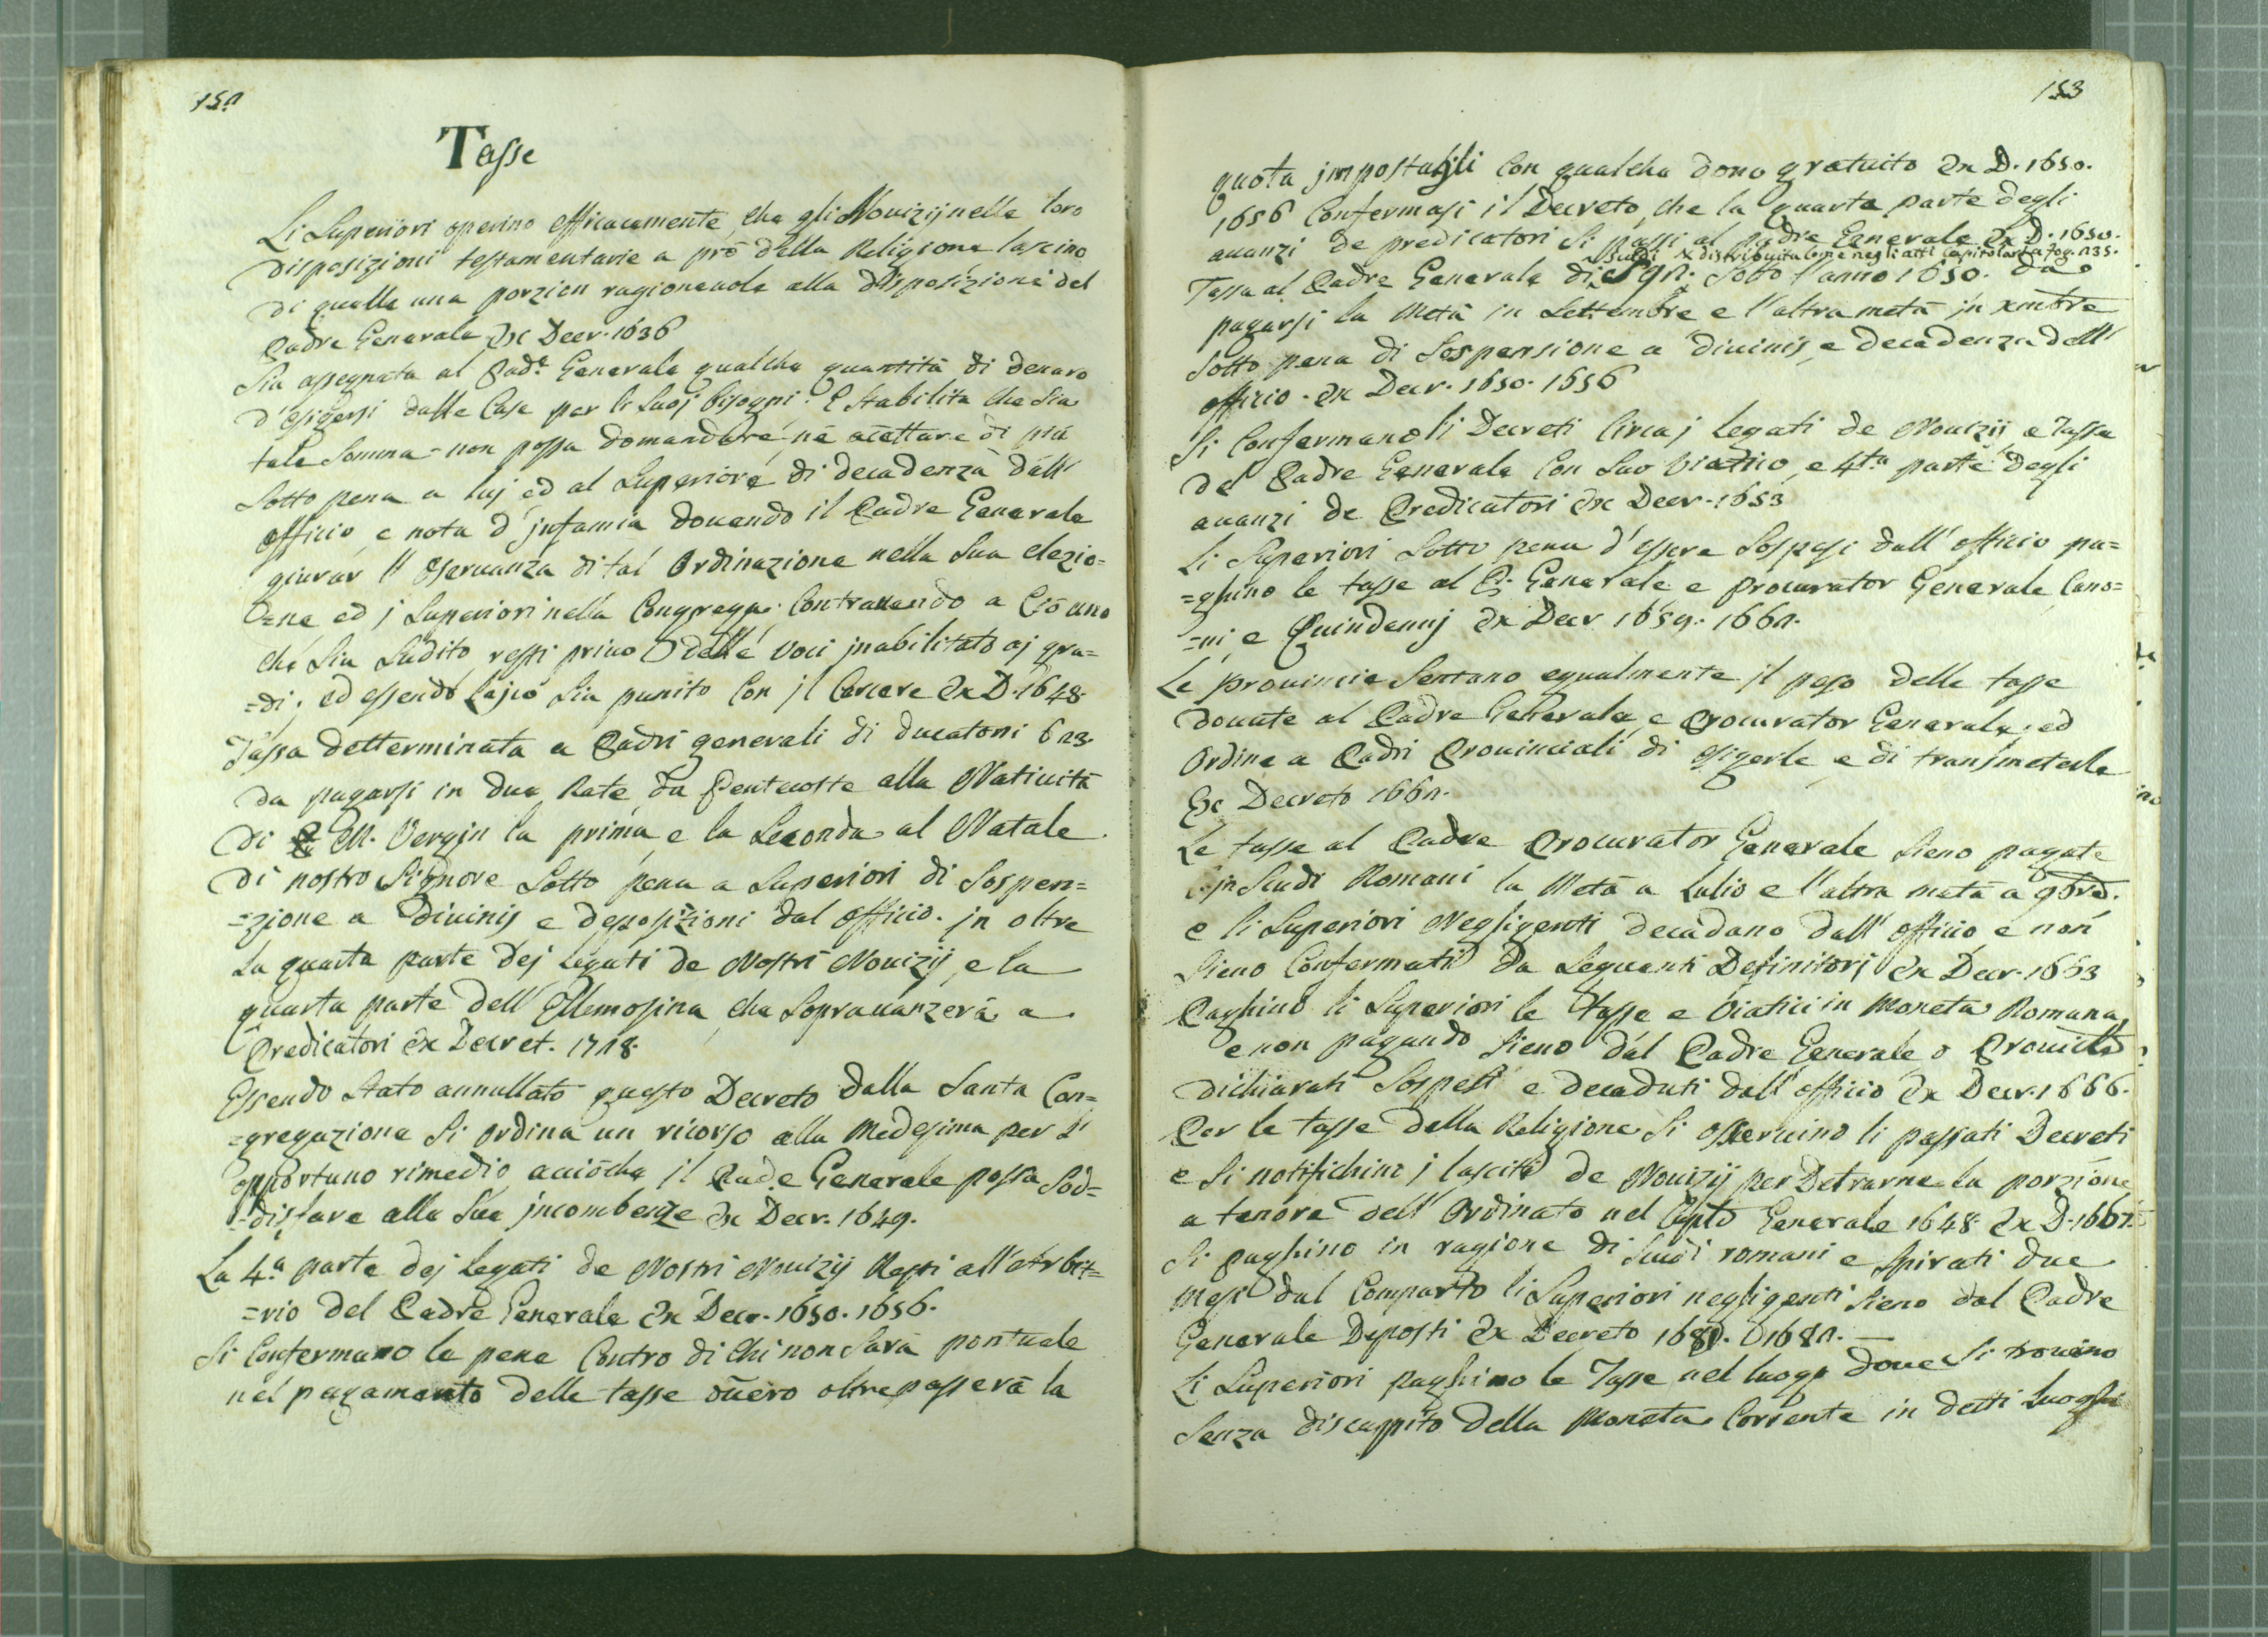 152
Tasse
Li Superiori operino efficacemente, che gli Nouizij nelle loro
disposizioni testamentarie a prò della Religione lascino
di quelle una porzion ragioneuole alla disposizione del
Padre Generale Ex Decr. 1636
Sia assegnata al Pad.e Generale qualche quantità di denaro
d'esigersi dalle Case per li suoj bisogni. E stabilita che sia
tale somma non possa domandare, nè acettare di più
sotto pena a luj ed al Superiore di decadenza dall'
officio e nota d'jnfamia douendo il Padre Generale
giurar l'oseruanza di tal Ordinazione nella sua elezio=
=ne ed j Superiori nella Congregaz. Contrauendo a Ciò uno
che sia sudito resti priuo delle voci jnabilitato aj gra=
=di; ed essendo lajco sia punito con jl Carcere Ex D. 1648.
Tassa detterminata a Padri generali di ducatoni 623.
da pagarsi in due Rate, da Pentecoste alla Natiuità
di M. Vergin la prima, e la seconda al Natale
di nostro Signore sotto pena a Superiori di sospen=
=zione a diuinis e deposizioni dal officio. jn oltre
La quarta parte dej legati de Nostri Nouizij, e la
quarta parte dell'Ellemosina, che soprauanzerà a
Predicatori Ex Decret. 1718.
Essendo stato annullato questo Decreto dalla Santa Con=
=gregazione si ordina un ricorso alla Medesima per l'
opportuno rimedio, acciòche jl Padre Generale possa sod=
=disfare alle sue jncombenze Ex Decr. 1649.
La 4.a parte dej legati de Nostri Nouizij Resti all'Arbit=
=rio del Padre Generale Ex Decr. 1650. 1656.
Si Confermano le pene Contro di Chi non sarà pontuale
nel pagamento delle tasse ouero oltrepasserà la
153
quota jmpostagli con qualche dono gratuito Ex D. 1650.
1656 Confermasi il Decreto, che la quarta parte degli
auanzi de predicatori si passi al padre Generale Ex D. 1650.
Scudi x distribuita come negli atti Capitolari a fog. 235.
Tassa al Padre Generale di 592. sotto l'anno 1650. da
pagarsi la Metà in Settembre e l'altra metà jn xmbre
sotto pena di sospensione a diuinis, e decadenza dell'
officio. Ex Decr. 1650. 1656
Si Confermano li Decreti Circa j legati de Nouizij, e Tassa
del Padre Generale Con suo viatico, e 4.ta parte degli
auanzi de Predicatori Ex Decr. 1653
Li Superiori sotto pena d'essere sospesi dall'officio pa=
=ghino le tasse al P. Generale e procurator Generale, Cano=
=ni, e Quindennj Ex Decr 1659. 1662.
Le prouincie sentano egualmente jl peso delle tasse
douute al Padre Generale, e Procurator Generale; ed
Ordine a Padri Prouinciali di esigerle, e di transmeterle
Ex Decreto 1662.
Le tasse al Padre Procurator Generale sieno pagate
jn scudi Romani la Metà a Lulio e l'altra metà a 9bre.
e li Superiori Negligenti decadano dall'officio, e non
sieno Confermati da seguenti Definitorj Ex Decr. 1663
Paghino li Superiori le tasse e viatici in Moneta Romana,
e non pagando sieno dal Padre Generale o Prouicle
dichiarati sospesi e decaduti dall'officio Ex Decr. 1666.
Per le tasse della Religione si osseruino li passati Decreti
e si notifichino j lasciti de Nouizij per Detrarne la porzione
a tenore dell'Ordinato nel Caplo Generale 1648. Ex D. 1667.
Si paghino in ragione di scudi romani e spirati due
Mesi dal Comparto li Superiori negligenti sieno dal Padre
Generale Deposti Ex Decreto 1680. 1682.
Li Superiori paghino le Tasse nel luogo doue si trouino
senza discappito della Moneta Corrente in detti luoghi